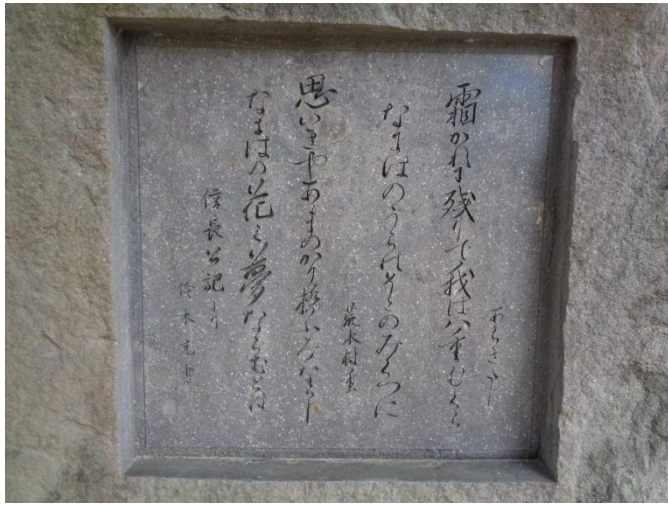 あらきたし
霜かれに残りて我は八重むくら
なにはのうらのそこのみくつに
荒木村重
思いきやあまのかけ橋ふみならし
なにはの花も夢ならむとは
信長公記より
木 書